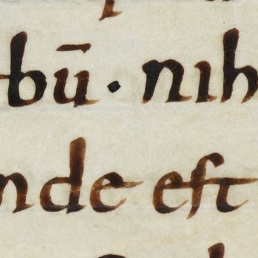 bū · nih
nde est